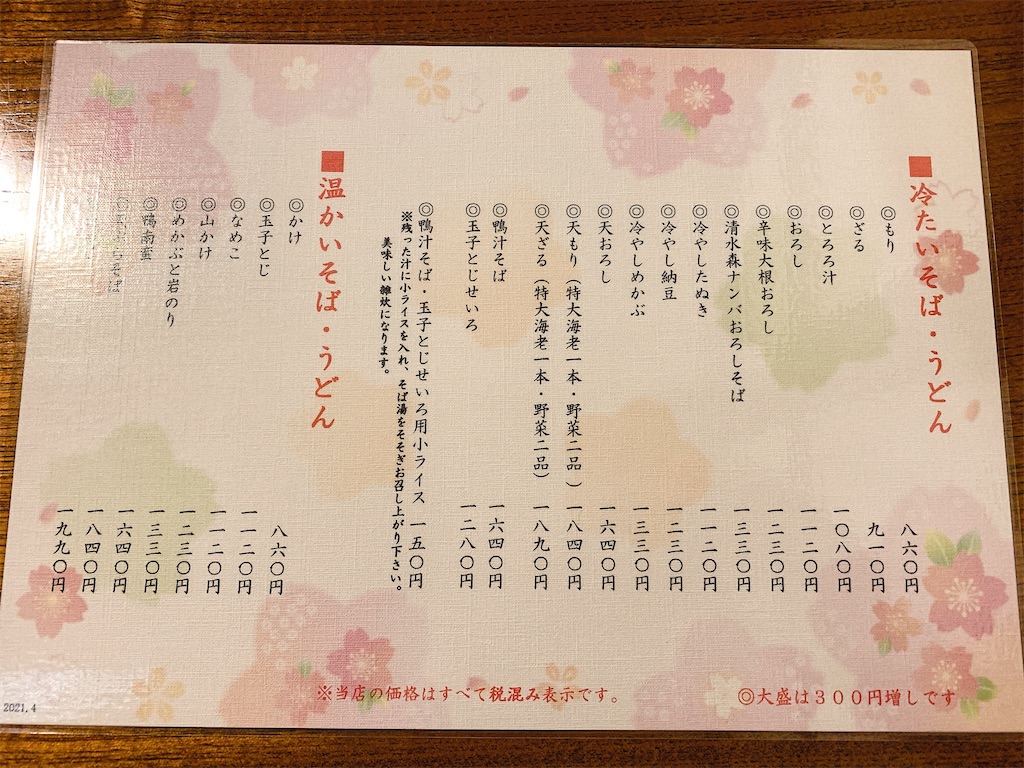 ■冷たいそば・うどん
◎もり 八六〇円
◎ざる 九一〇円
◎とろろ汁 一〇八〇円
◎おろし 一一二〇円
◎辛味大根おろし 一二三〇円
◎清水森ナンバおろしそば 一三三〇円
◎冷やしたぬき 一一二〇円
◎冷やし納豆 一二三〇円
◎冷やしめかぶ 一三三〇円
◎天おろし 一六四〇円
◎天もり（特大海老一本・野菜二品） 一八四〇円
◎天ざる（特大海老一本・野菜二品） 一八九〇円
◎鴨汁そば 一六四〇円
◎玉子とじせいろ 一二八〇円
◎鴨汁そば・玉子とじせいろ用小ライス 一五〇円
※残った汁に小ライスを入れ、そば湯をそそぎお召し上がり下さい。
美味しい雑炊になります。
■温かいそば・うどん
◎かけ 八六〇円
◎玉子とじ 一一二〇円
◎なめこ 一一二〇円
◎山かけ 一二三〇円
◎めかぶと岩のり 一三三〇円
◎鴨南蛮 一六四〇円
一八四〇円
一九九〇円
◎大盛は３００円増しです
※当店の価格はすべて税混み表示です。
2021.4